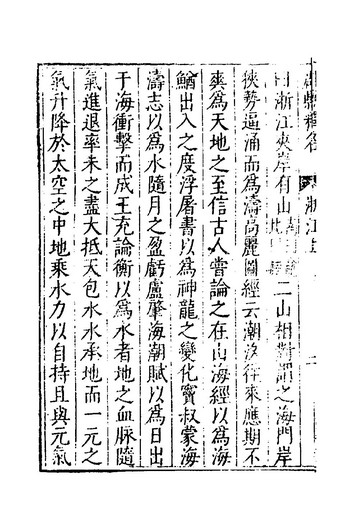 浙江
曰浙江夾岸有山二山相對謂之海門岸
狹勢逼涌而為濤高麗圖經云潮汐往來應期不
爽為天地之至信古人嘗論之在山海經以為海
鰌出入之度浮屠書以為神龍之變化竇叔蒙海
濤志以為水隨月之盈虧盧肇海潮賦以為日出
于海衝擊而成王充論衡以為水者地之血脉隨
氣進退率未之盡大抵天包水水承地而一元之
氣升降於太空之中地乘水力以自持且與元氣